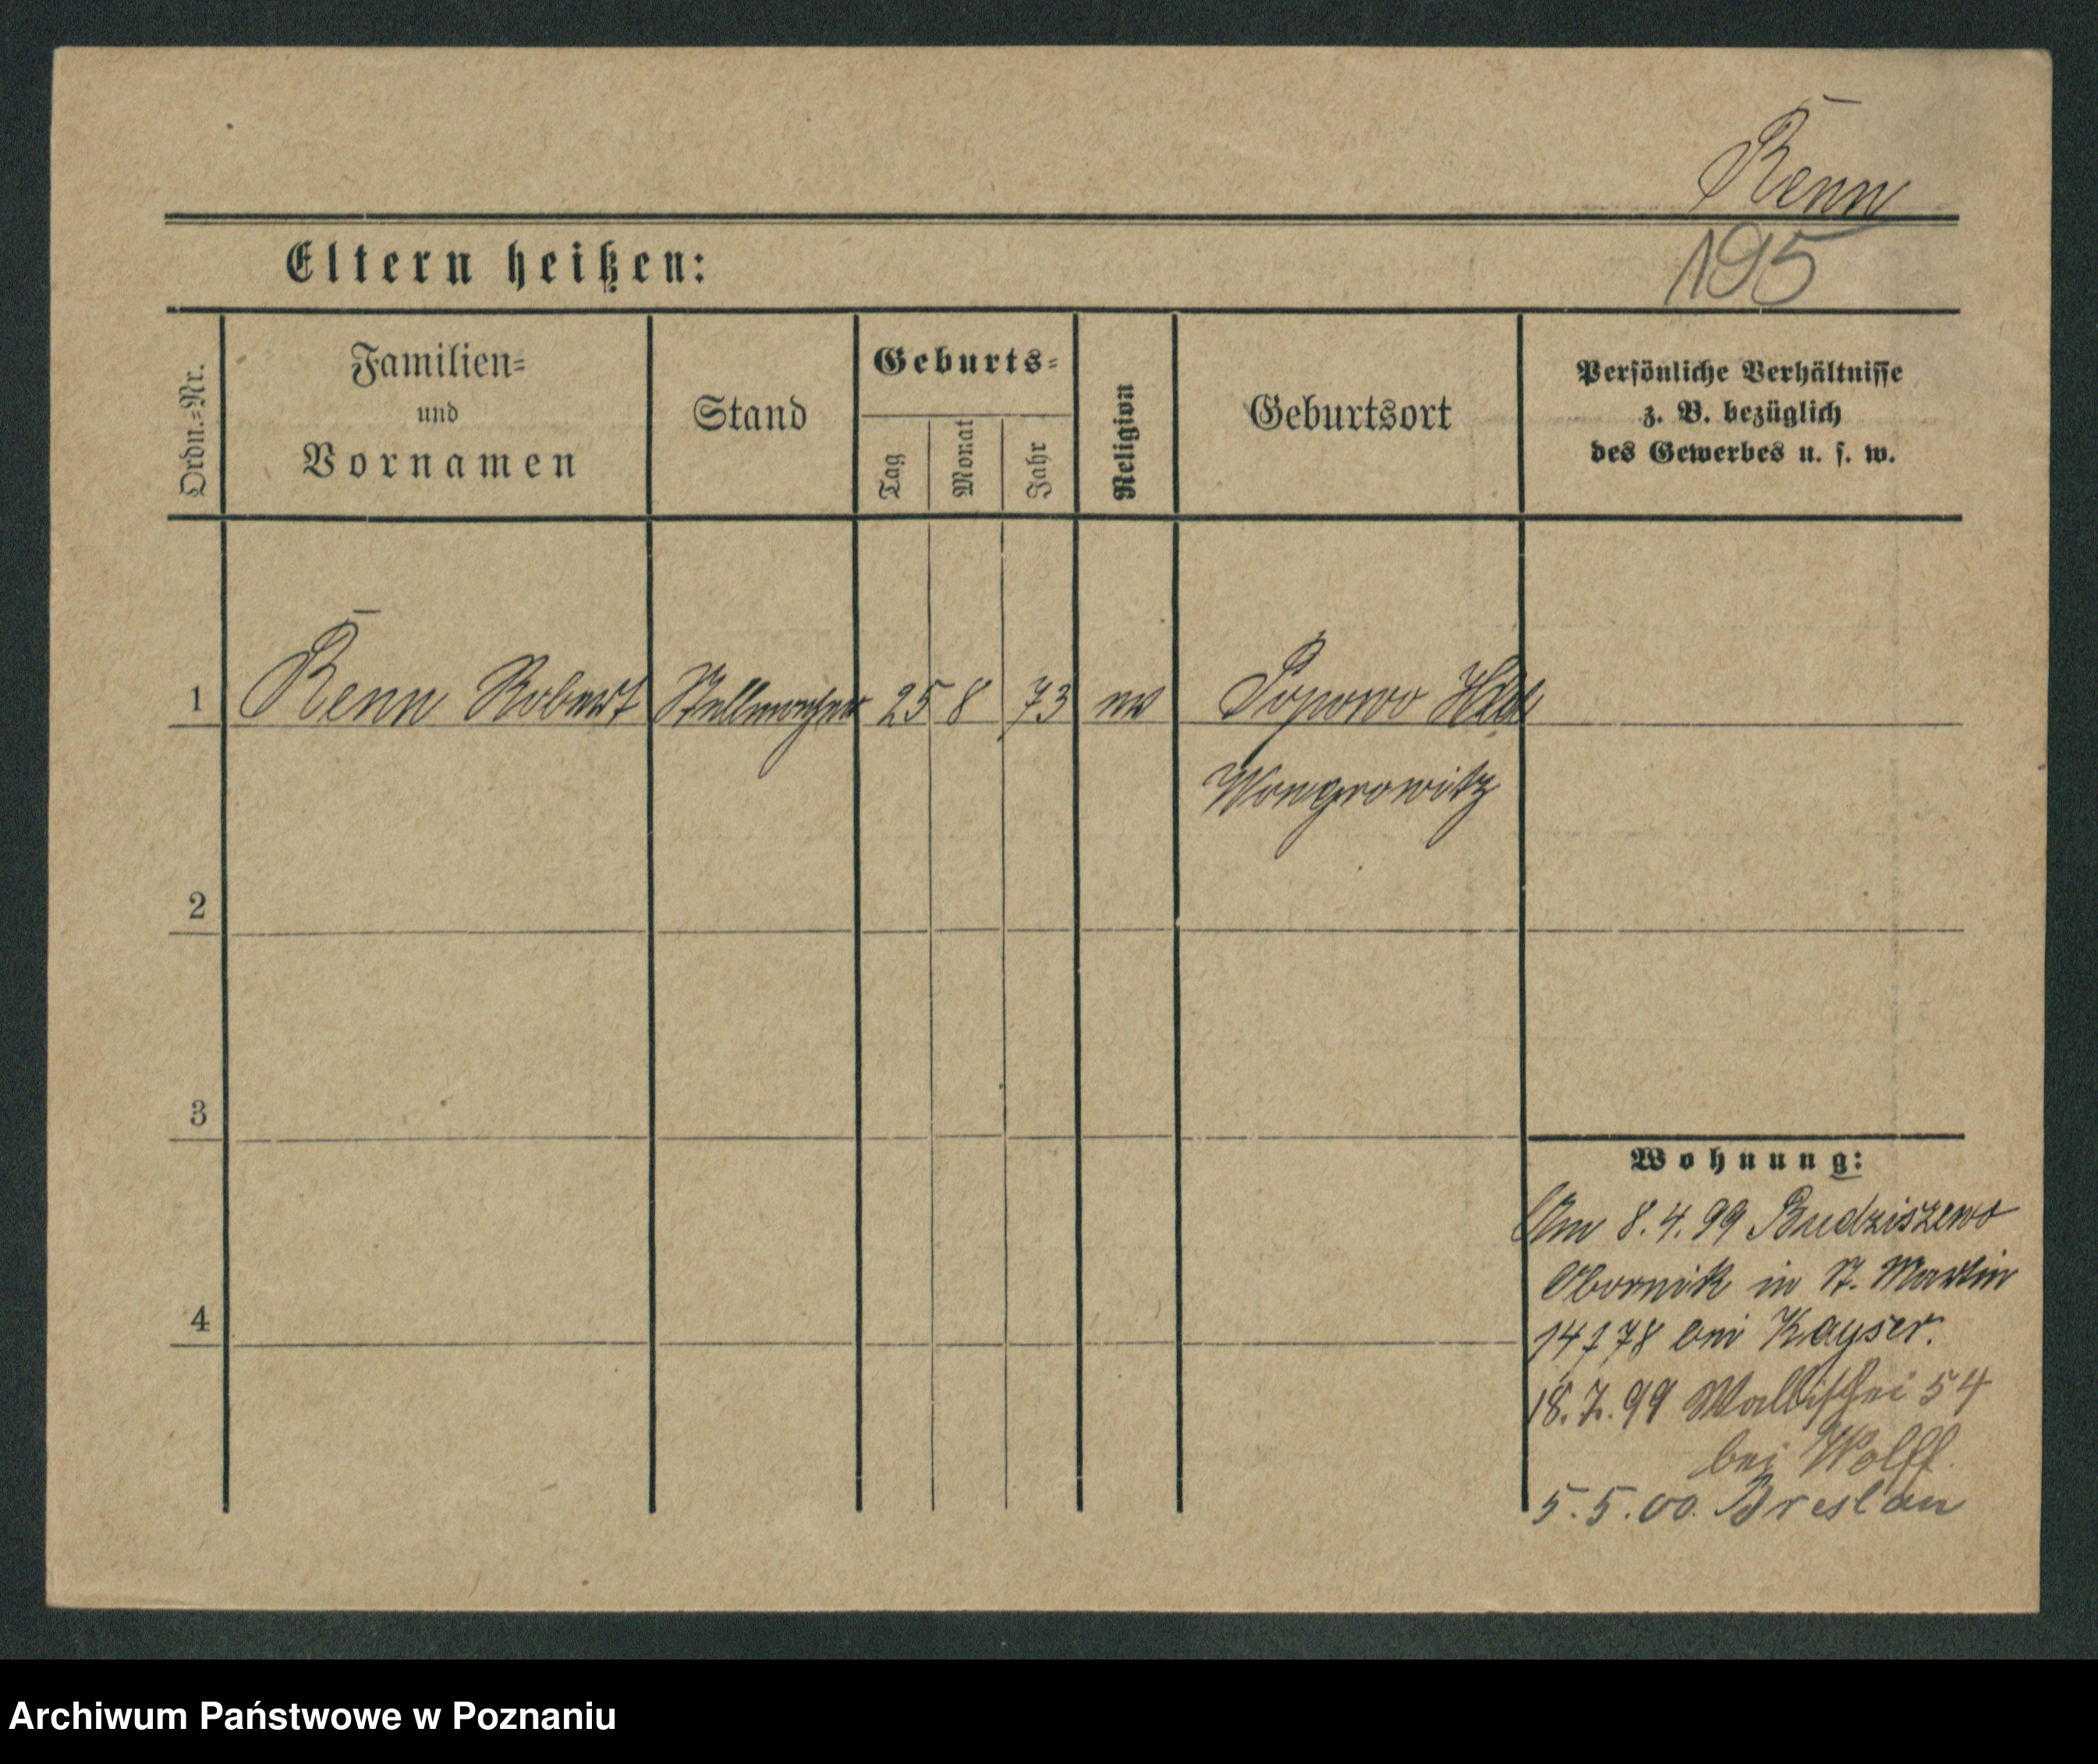 Renn
195
Eltern heißen:
Ordn.=Nr.
Familien=
und
Vornamen
Stand
Geburts=
Tag
Monat
Jahr
Religion
Geburtsort
Persönliche Verhältnisse
z. B. bezüglich
des Gewerbes u. s. w.
1 Renn Robert Stellmacher 25 8 73 ev Popowo
Wongrowitz
2
3
4
Wohnung:
Am 8.4.99 Budziszewo
Obornik in St. Martin
bei Kayser.
18.7.99 Wallischei 54
bei Wolff.
5.5.00. Breslau
Archiwum Państwowe w Poznaniu